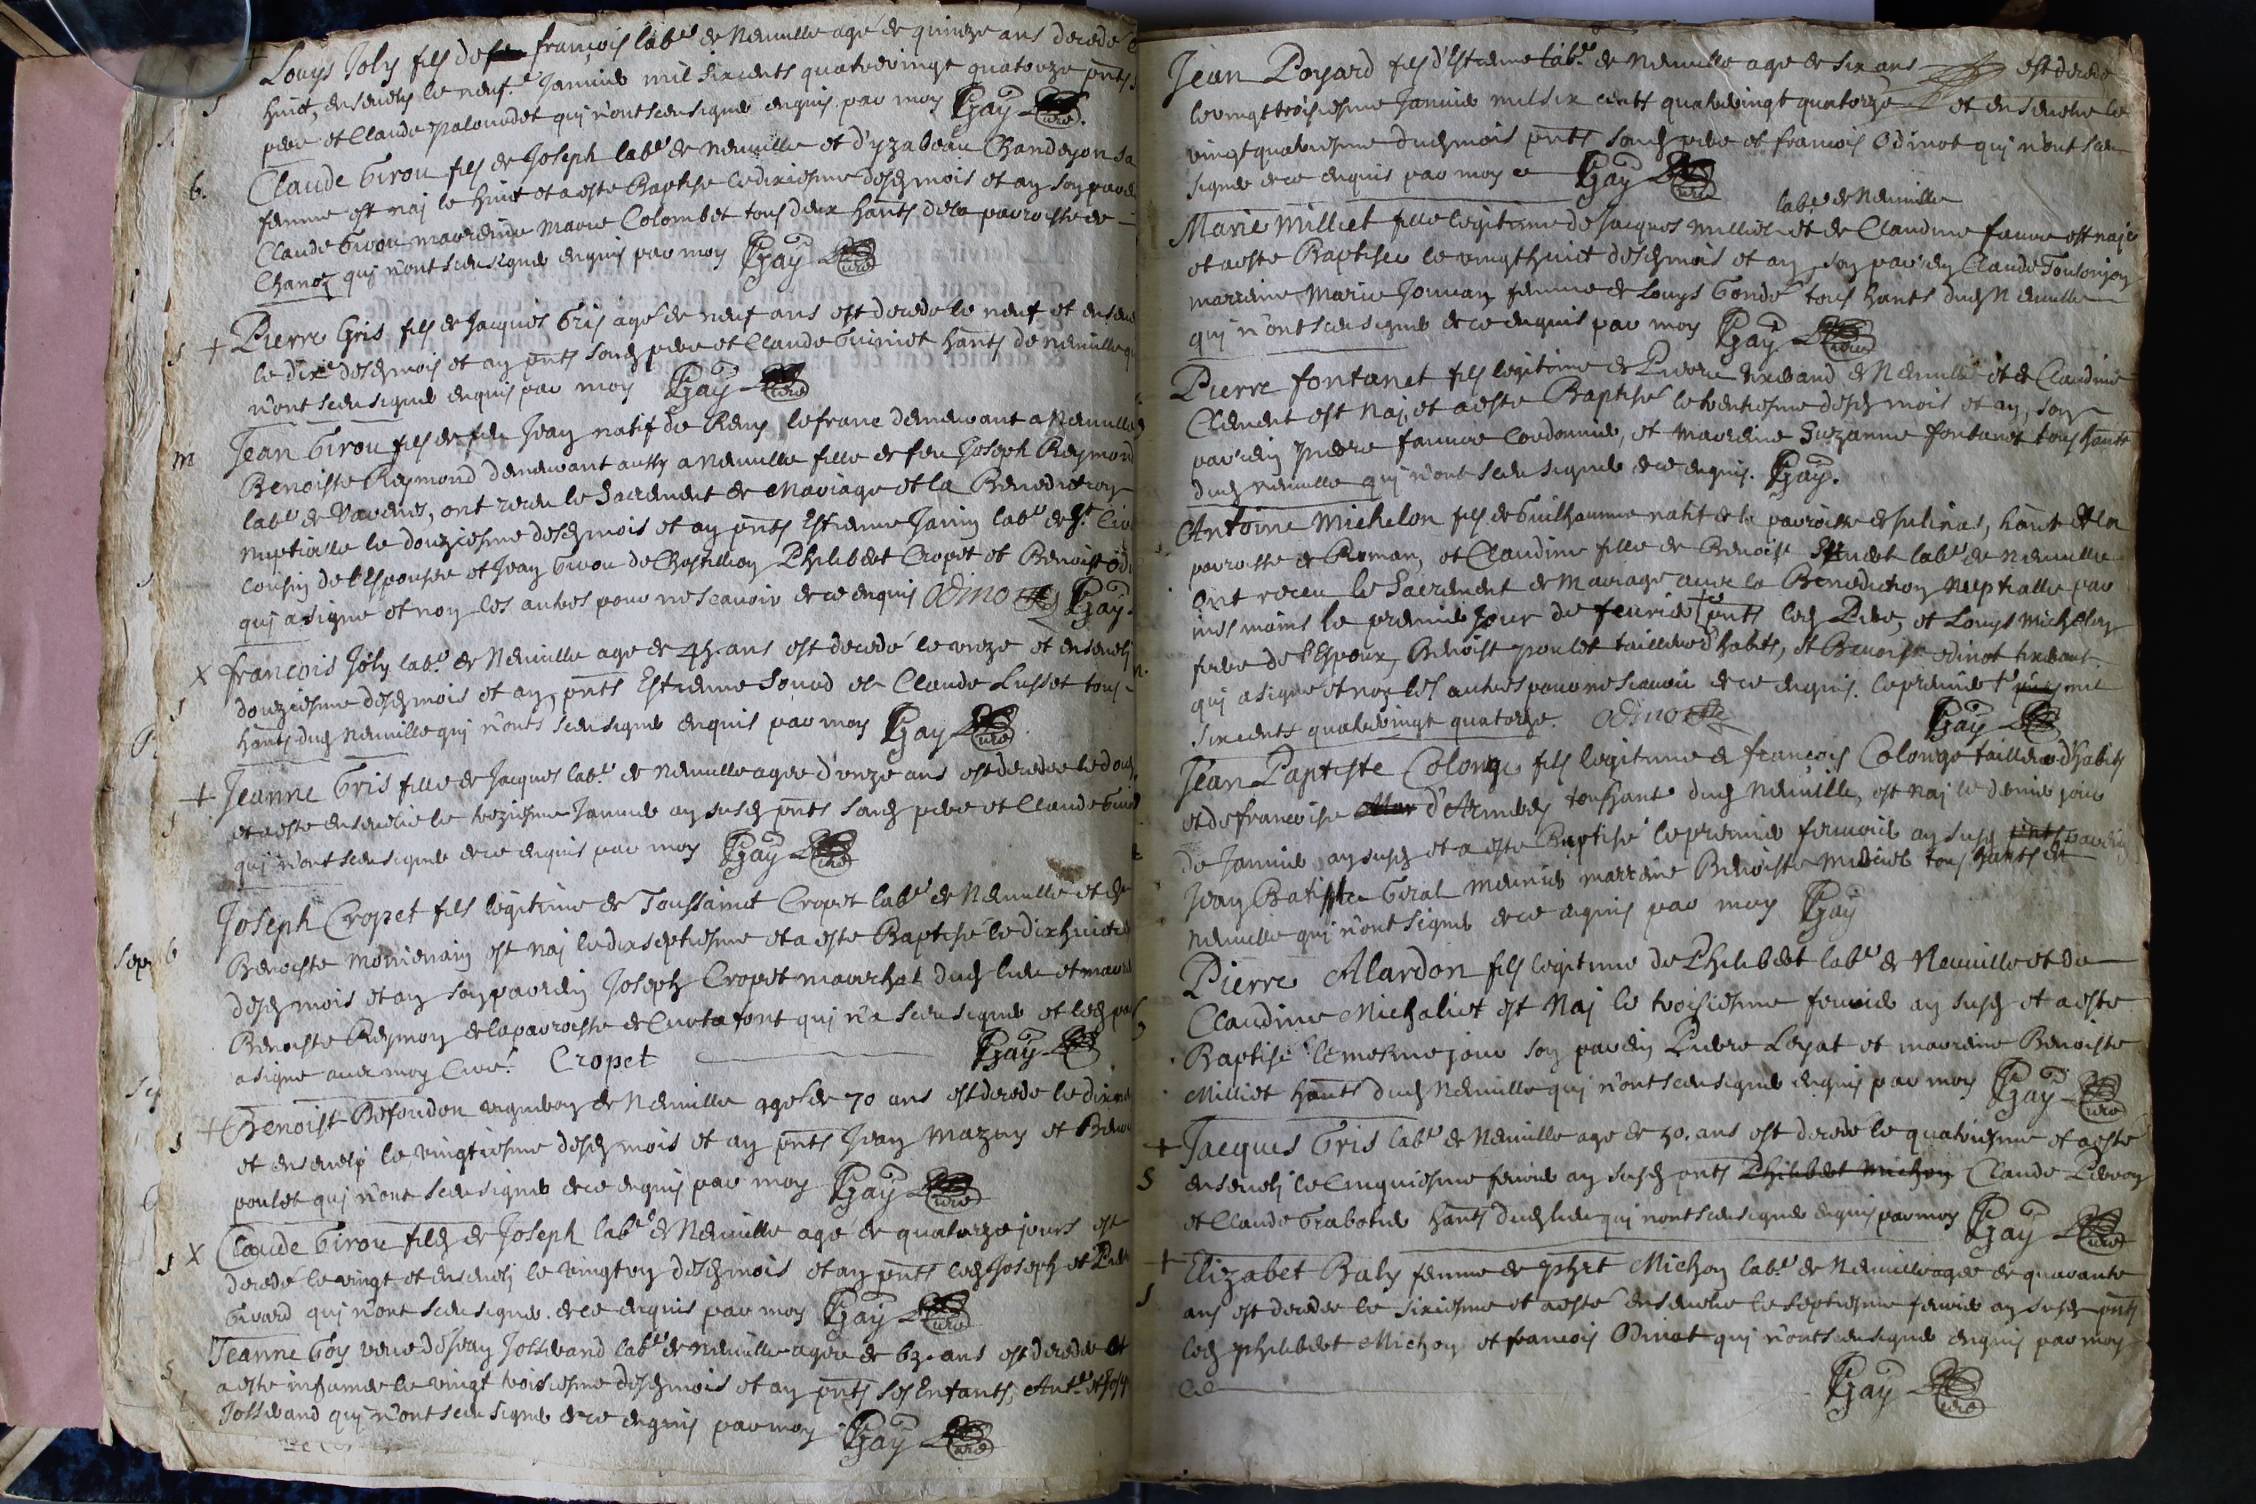 + Louys Joly fils de françois lab.r de Neuville agé de quinze ans decedé
S huict, ensevely le neuf.e Janvier mil sixcents quatrevingt quatorze pnts
pere et Claude qui n'ont sceu signer enquis par moy Gay curé.
b. Claude Girou fils de Joseph lab.r de Neuville et d'yzabeau Chandeyon sa
femme est naj le huict et a esté Baptisé le dixiesme desd mois et an son parr
Claude Girou marreine Marie Colombet tous deux hants de la parroisse de
Chanoz qui n'ont sceu signer enquis par moy Gay curé
S + Pierre Gris fils de Jacques Gris agé de neuf ans est decedé le neuf et enseve
le dix.e desd mois et an pnts sond pere et Claude Guiniet hants de neuville q
n'ont sceu signer enquis par moy Gay curé
m Jean Girou fils de feu Jean natif de Remy lefranc demeurant a Neuville
Benoiste Reymond demeurant aussy a Neuville fille de feu Joseph Reymond
lab.r de Vaveres, ont receu le Sacrement de Mariage et la Benediction
nuptialle le douziesme desd mois et an pnts Estienne Janin lab.r de St Cir
cousin de l'Espousée et Jean Girou de Chastillion Philibert Cropet et Benoist Odi
qui a signé et non les autres pour ne scavoir de ce enquis Odinot Gay
X françois Joly lab.r de Neuville agé de 45. ans est decedé le unze et ensevely
S douziesme desd mois et an, pnts Estienne et Claude Lusset tous
hants dud Neuville qui n'onts sceu signer enquis par moy Gay curé
+ Jeanne Gris fille de Jacques lab.r de Neuville agée d'unze ans est decedée le douz
S et a esté ensevelie le treziesme Janvier an susd pnts sond pere et Claude Guini
qui n'ont sceu signer de ce enquis par moy Gay curé
Joseph Cropet fils legitime de Toussainct Cropet lab.r de Neuville et de
b Benoiste est naj le dixseptiesme et a esté Baptisé le dixhuictie
desd mois et an son parrein Joseph Cropet marchat dud lieu et marre
Benoiste Reymon de la parroisse de Curtafont qui n'a sceu signer et led pa
a signé avec moy Curé. Cropet Gay curé
+ Benoist vigneron de Neuville agé de 70 ans est decedé le dixne
S et ensevely le vingtiesme desd mois et an pnts Jean Mazuy et Beno
poulet qui n'ont sceu signer de ce enquis par moy Gay curé
S X Claude Girou fils de Joseph lab.r de Neuville agé de quatorze jours est
decedé le vingt et ensevely le vingt un desd mois et an pnts led Joseph et Pier
Girard qui n'ont sceu signer de ce enquis par moy Gay curé
Jeanne Goy veuve de Jean Josserand lab.r de neuville agée de 63. ans est decedée et
S a esté inhumée le vingt troisiesme desd mois et an pnts ses Enfants, Ant.e et Jos
Josserand qui n'ont sceu signer de ce enquis par moy Gay curé
Jean Poyard fils d'Estienne lab.r de Neuville agé de six ans est decedé
le vingttroisiesme Janvier mil six cents quatrevingt quatorze et ensevelie le
vingtquatriesme dud mois pnts sond pere et françois Odinot qui n'ont sceu
signer de ce enquis par moy Gay curé
lab.r de Neuville
Marie Milliet fille legitime de Jacques Milliet et de Claudine favre est naje
et a esté Baptisée le vingthuict desd mois et an, son parrein Claude Toulonjon
marreine Marie Jouvan femme de Louys Gondé tous hants dud Neuville
qui n'ont sceu signer de ce enquis par moy Gay curé
Pierre fontanet fils legitime de Pierre tixerand de Neuville et de Claudine
Clement est naj et a esté Baptisé le trentiesme desd mois et an, son
parrein Pierre favvre Cordonnier, et marreine Suzanne fontanet tous hants
dud neuville qui n'ont sceu signer de ce enquis. Gay.
Antoine Michelon fils de Guilhaume natif de la parroisse de Sulinas, hant de la
parroisse de Roman, et Claudine fille de Benoist lab.r de neuville
ont receu le Sacrement de Mariage avec la Benediction nuptialle par
mes mains le premier Jour de fevrier pnts led Pere, et Louys Michelon
frere de l'Espoux, Benoist poulet tailleur d'habits, et Benoist odinot tixerant
qui a signé et non les autres pour ne scavoir de ce enquis. le premier mil
sixcents quatrevingt quatorze. Odinot Gay curé
Jean Baptiste Colonge fils legitime de françois Colonge tailleur d'habits
et de francoise d'Armeley tous hants dud Neuville, est naj le dernier jour
de Janvier an susd et a esté Baptisé le premier fevrier an susd parrein
Jean Batiste Giral meunier marreine Benoiste Mercier tous hants de
neuville qui n'ont signer de ce enquis par moy Gay
Pierre Alardon fils legitime de Philibert lab.r de Neuville et de
Claudine Michaliet est Naj le troisiesme fevrier an susd et a esté
Baptisé le mesme jour son parrein Pierre Loyat et marreine Benoiste
Milliet hants dud Neuville qui n'ont sceu signer enquis par moy Gay curé
+ Jacques Gris lab.r de Neuville agé de 50. ans est decedé le quatriesme et a esté
S ensevely le Cinquiesme fevrier an susd pnts Philibert Michon Claude Perron
et Claude Grabotier hants dud lieu qui n'ont sceu signer enquis par moy Gay curé
+ Elizabet Baly femme de phrt Michon lab.r de Neuville agée de quarante
S ans est decedée le sixiesme et a esté ensevelie le septiesme fevrier an susd pnts
led philibert Michon et francois Odinot qui n'ont sceu signer enquis par moy
Gay curé